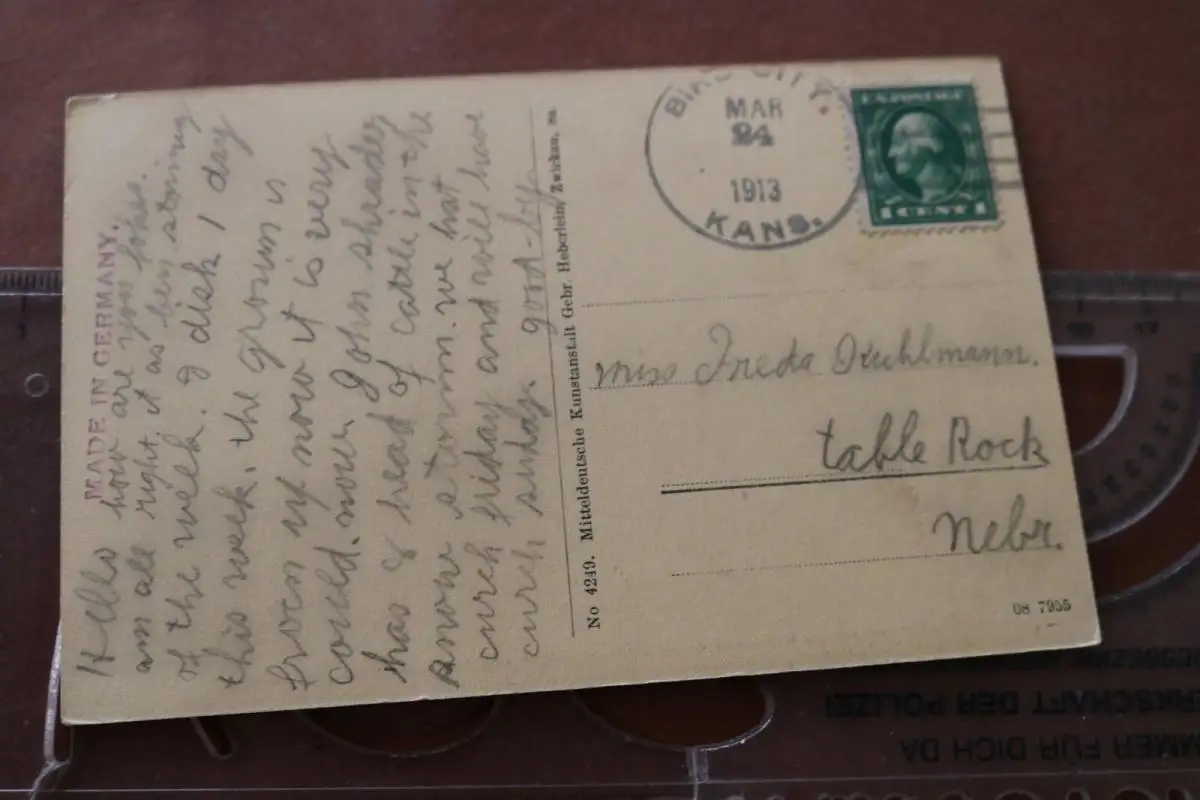 MADE IN GERMANY.
Hello how are you fokes.
am all right. it as ben storing
of the week. I disk 1 day
this week. the groun is
froen up now it is very
could. now John shrader
has 8 head of catle in the
snow storm. we hat
curch friday and will have
curch sunday. good-bye
No 4249. Mitteldeutsche Kunstanstalt Gebr. Heberlein, Zwickau, Sa
BIRD CITY.
MAR
24
1913
KANS.
U.S. POSTAGE
1 CENT 1
miss Freda Kuhlmann.
table Rock
Nebr.
08 7955
KSCHAFT DER POLIZEI
MMER FÜR DICH DA